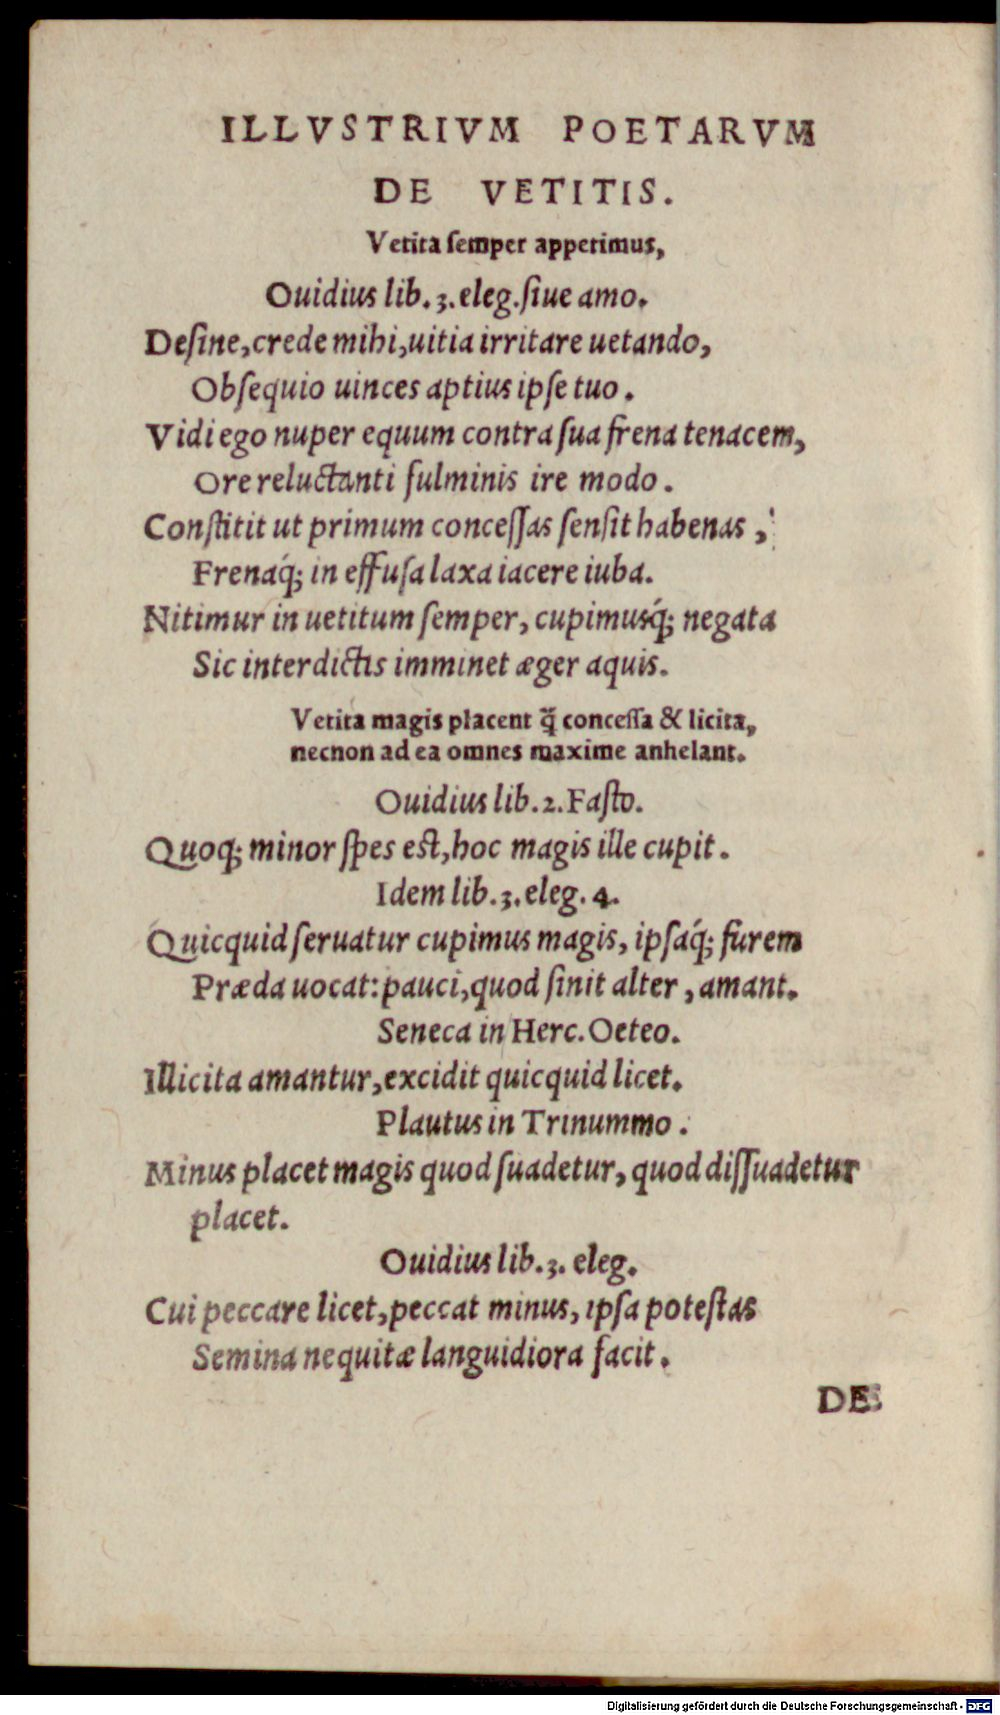 ILLVSTRIVM POETARVM
DE VETITIS.
Vetita ſemper appetimus,
Ouidius lib. 3. eleg. ſiue amo.
Deſine, crede mihi, uitia irritare uetando,
Obſequio uinces aptius ipſe tuo.
Vidi ego nuper equum contra ſua frena tenacem,
Ore reluctanti fulminis ire modo.
Conſtitit ut primum conceſſas ſenſit habenas,
Frenaq́; in effuſa laxa iacere iuba.
Nitimur in uetitum ſemper, cupimusq́; negata
Sic interdictis imminet æger aquis.
Vetita magis placent q̃ conceſſa & licita,
necnon ad ea omnes maxime anhelant.
Ouidius lib. 2. Faſto.
Quoq; minor ſpes eſt, hoc magis ille cupit.
Idem lib. 3. eleg. 4.
Quicquid ſeruatur cupimus magis, ipſaq́; furem
Præda uocat: pauci, quod ſinit alter, amant.
Seneca in Herc. Oeteo.
Illicita amantur, excidit quicquid licet.
Plautus in Trinummo.
Minus placet magis quod ſuadetur, quod diſſuadetur
placet.
Ouidius lib. 3. eleg.
Cui peccare licet, peccat minus, ipſa poteſtas
Semina nequitæ languidiora facit.
DE
Digitalisierung gefördert durch die Deutsche Forschungsgemeinschaft - DFG